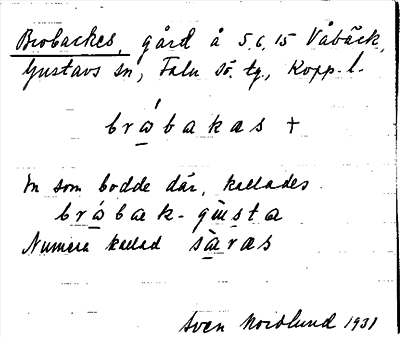 Brobackes, gård å 5, 6, 15 Våbäck,
Gustavs sn, Falu sö. tg., Kopp. l.
brábakas +
En som bodde där, kallades
brábak-gùsta
Numera kallad sàras
Sven Norlund 1931